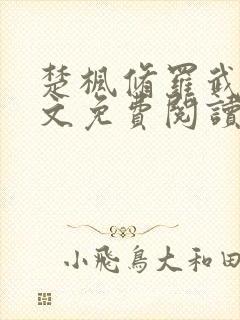 楚楓脩羅武
文免費閱讀
小飛鳥大和田